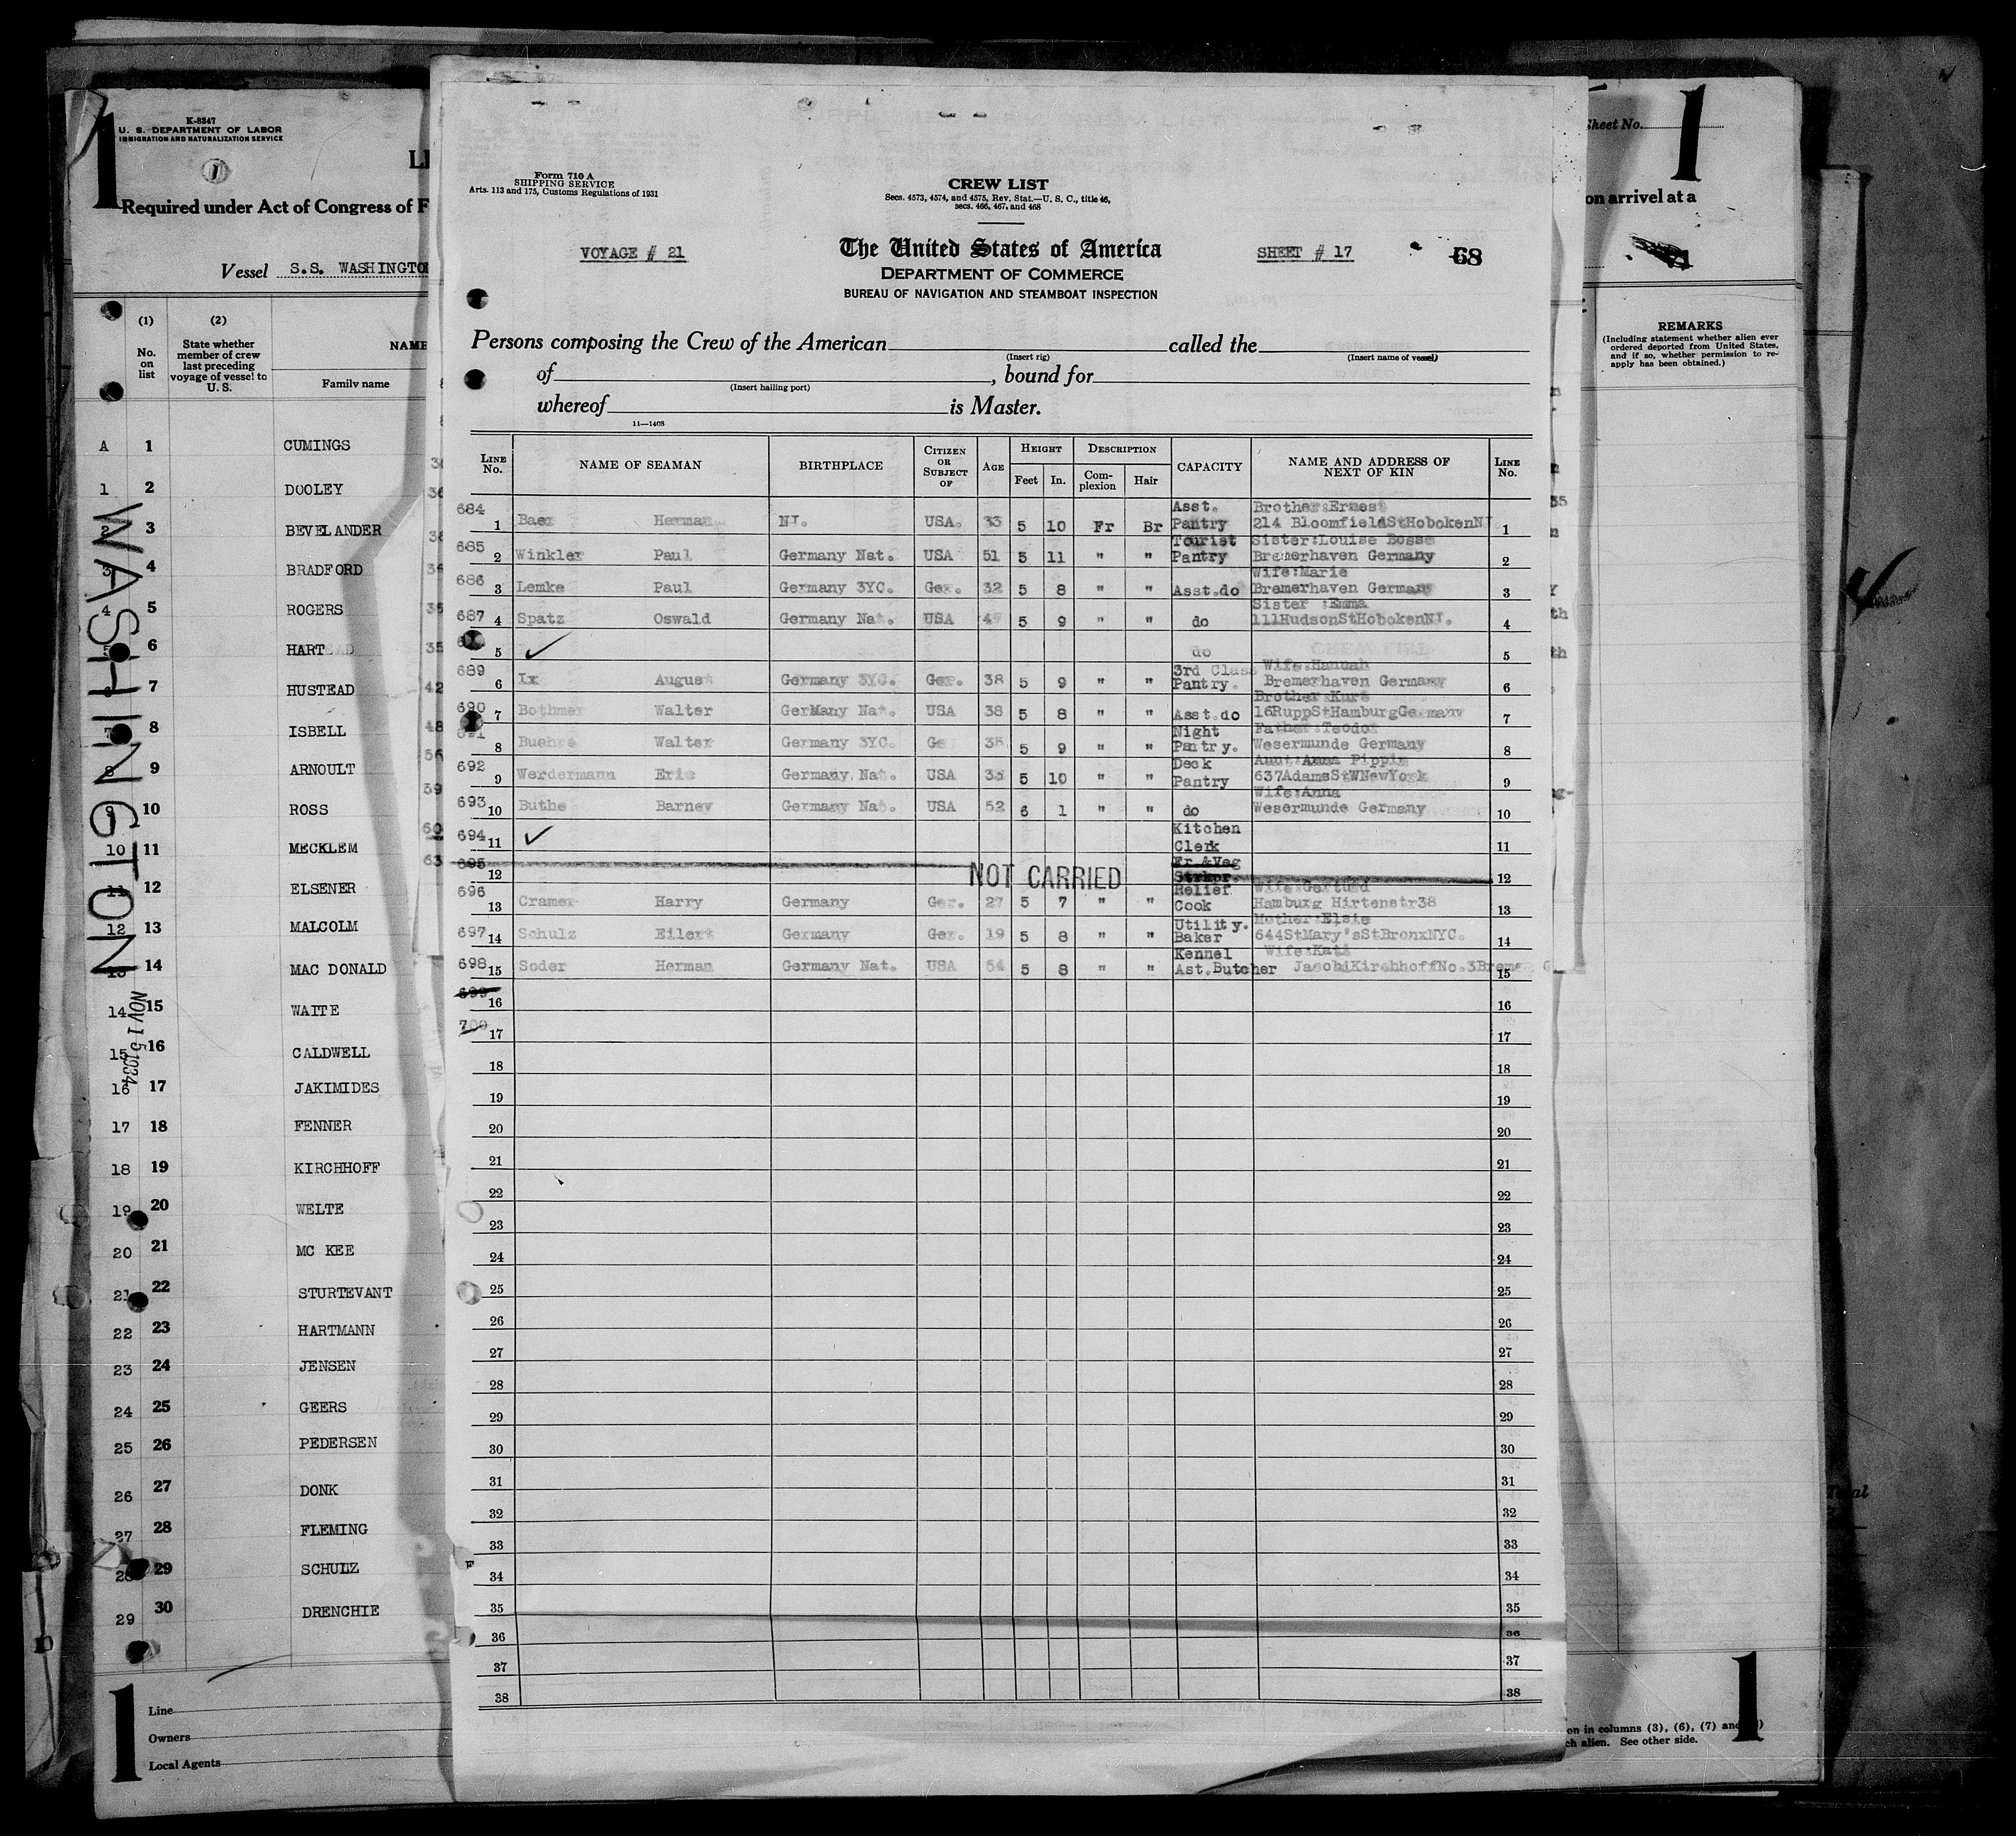 K-8347
U. S. DEPARTMENT OF LABOR
IMMIGRATION AND NATURALIZATION SERVICE
1
1
Required under Act of Congress of F
Vessel S.S. WASHINGTO
(1) (2)
No. on list
State whether member of crew last preceding voyage of vessel to U. S.
NAME
Family name
A 1 CUMINGS
1 2 DOOLEY
2 3 BEVELANDER
3 4 BRADFORD
4 5 ROGERS
6 HART
7 HUSTEAD
7 8 ISBELL
8 9 ARNOULT
9 10 ROSS
10 11 MECKLEM
11 12 ELSENER
12 13 MALCOLM
13 14 MAC DONALD
14 15 WAITE
15 16 CALDWELL
16 17 JAKIMIDES
17 18 FENNER
18 19 KIRCHHOFF
19 20 WELTE
20 21 MC KEE
21 22 STURTEVANT
22 23 HARTMANN
23 24 JENSEN
24 25 GEERS
25 26 PEDERSEN
26 27 DONK
27 28 FLEMING
28 29 SCHULZ
29 30 DRENCHIE
WASHINGTON
NOV 15 1934
1
Line
Owners
Local Agents
Form 710 A
SHIPPING SERVICE
Arts. 113 and 175, Customs Regulations of 1931
CREW LIST
Secs. 4573, 4574, and 4575, Rev. Stat.—U. S. C., title 46,
secs. 466, 467, and 468
VOYAGE # 21
The United States of America
SHEET # 17
68
DEPARTMENT OF COMMERCE
BUREAU OF NAVIGATION AND STEAMBOAT INSPECTION
Persons composing the Crew of the American called the
(Insert rig) (Insert name of vessel)
of , bound for
(Insert hailing port)
whereof is Master.
11—1408
LINE No. NAME OF SEAMAN BIRTHPLACE CITIZEN OR SUBJECT OF AGE HEIGHT Feet In. DESCRIPTION Complexion Hair CAPACITY NAME AND ADDRESS OF NEXT OF KIN LINE No.
684 Asst. Brother:Ernest
1 Baer Herman NJ. USA. 33 5 10 Fr Br Pantry 214 BloomfieldStHobokenNJ 1
685 Tourist Sister:Louise Bosse
2 Winkler Paul Germany Nat. USA 51 5 11 " " Pantry Bremerhaven Germany 2
686 Wife:Marie
3 Lemke Paul Germany 3YC. Ger. 32 5 8 " " Asst.do Bremerhaven Germany 3
687 Sister :Emma
4 Spatz Oswald Germany Nat. USA 47 5 9 " " do 111HudsonStHobokenNJ. 4
5 ✓ do 5
689 3rd Class Wife:Hannah
6 Ix August Germany 3YC. Ger. 38 5 9 " " Pantry. Bremerhaven Germany 6
690 Brother:Kurt
7 Bothmer Walter GerMany Nat. USA 38 5 8 " " Asst.do 16RuppStHamburgGermany 7
691 Night Father:Teodor
8 Walter Germany 3YC. 5 9 " " Pantry. Wesermunde Germany 8
692 Deck Aunt:Anna Pippin
9 Werdermann Eric Germany. Nat. USA 5 10 " " Pantry 637AdamsStWNewYork 9
693 Wife:Anna
10 Buthe Barney Germany Nat. USA 52 6 1 " " do Wesermunde Germany 10
694 Kitchen
11 ✓ Clerk 11
695 Fr.&Veg
12 NOT CARRIED Strkpr. 12
696 Relief Wife:Gerturd
13 Cramer Harry Germany Ger. 27 5 7 " " Cook Hamburg Hirtenstr38 13
697 Utility. Mother:Elsie
14 Schulz Eilert Germany Ger. 19 5 8 " " Baker 644StMary'sStBronxNYC. 14
698 Kennel Wife:Kati
15 Soder Herman Germany Nat. USA 54 5 8 " " Ast.Butcher JacobiKirchhoffNo.3Bremen G 15
699
16 16
700
17 17
18 18
19 19
20 20
21 21
22 22
23 23
24 24
25 25
26 26
27 27
28 28
29 29
30 30
31 31
32 32
33 33
34 34
35 35
36 36
37 37
38 38
Sheet No.
1
on arrival at a
REMARKS
(Including statement whether alien ever ordered deported from United States, and if so, whether permission to reapply has been obtained.)
on in columns (3), (6), (7) and
ch alien. See other side.
1